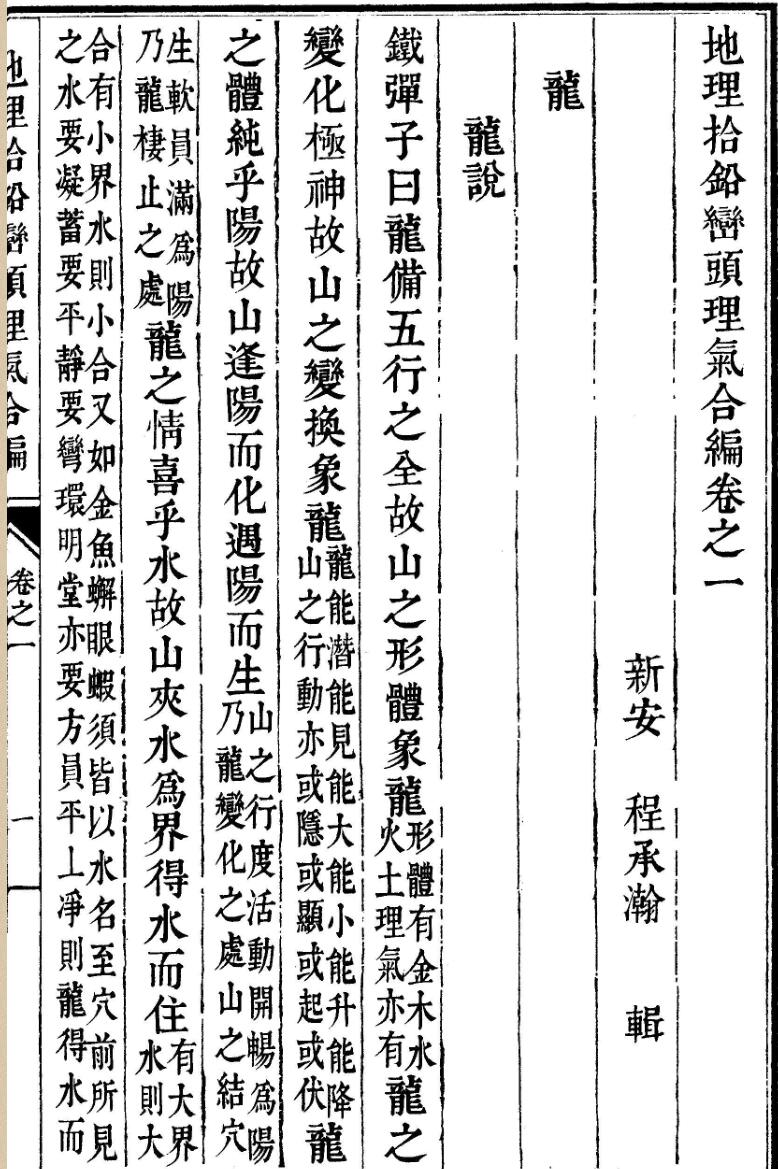 地理拾鉛巒頭理氣合編卷之一
新安　程承瀚　輯
龍
龍說
鐵彈子曰龍備五行之全故山之形體象龍形體有金木水火土理氣亦有龍之
變化極神故山之變換象龍龍能潛能見能大能小能升能降山之行動亦或隱或顯或起或伏龍
之體純乎陽故山逢陽而化遇陽而生山之行度活動開暢爲陽乃龍變化之處山之結穴
生軟員滿爲陽乃龍棲止之處龍之情喜乎水故山夾水爲界得水而住有大界水則大
合有小界水則小合又如金魚蠏眼蝦須皆以水名至穴前所見之水要凝蓄要平靜要彎環明堂亦要方員平正凈則龍得水而
地理拾鉛巒頭理氣合編
卷之一
一